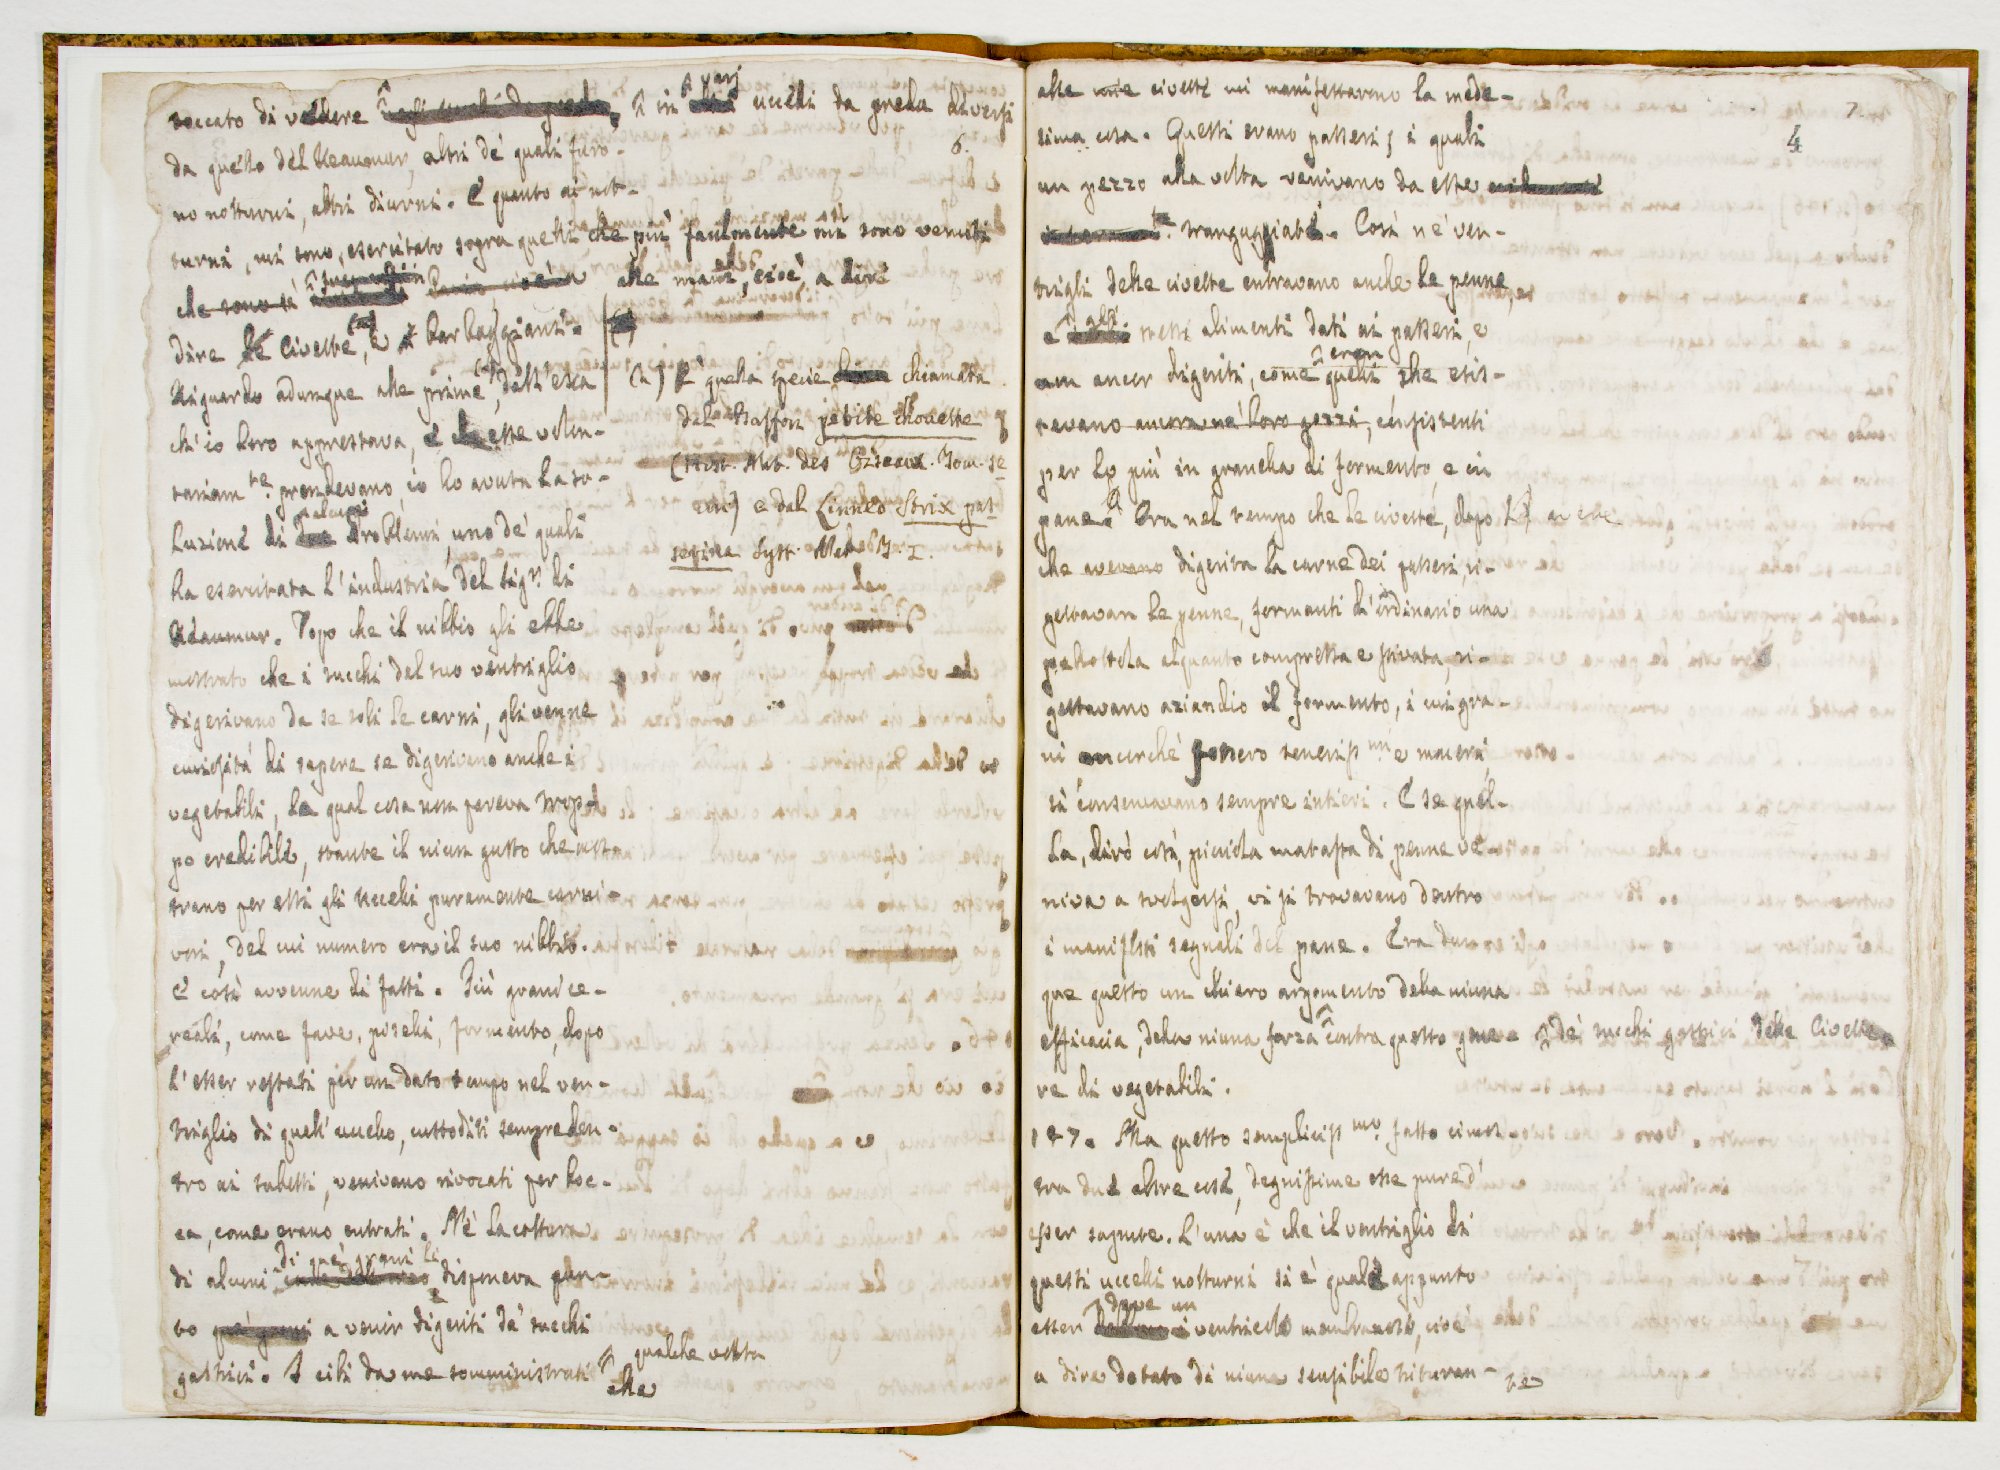 toccato di vedere in varj uccelli da preda diversi
6.
da quello del Reaumur, altri de' quali furo-
no notturni, altri diurni. E quanto ai not-
turni, mi sono esercitato sopra quelli che più facilmente mi sono venuti
alle mani, cioè, a dire
che sono
dire le Civette, (a) e i barbaggianni.
Riguardo adunque alle prime, dell'esca
ch'io loro apprestava, e che esse volon-
tariam.te prendevano, io ho avuta la so-
luzione di alcuni Problemi, uno de' quali
ha esercitata l'industria del Sig.r di
Reaumur. Dopo che il nibbio gli ebbe
mostrato che i succhi del suo ventriglio
digerivano da se soli le carni, gli venne
curiosità di sapere se digerivano anche i
vegetabili, la qual cosa non pareva trop-
po credibile, stante il niun gusto che mo-
strano per essi gli uccelli puramente carni-
vori, del cui numero era il suo nibbio.
E così avvenne di fatti. Più grani ce-
reali, come fave, piselli, formento, dopo
l'esser restati per un dato tempo nel ven-
triglio di quell'uccello, custoditi sempre den-
tro ai tubetti, venivano rivocati per boc-
ca, come erano entrati. Nè la cottura
di alcuni di que' grani li disponeva pun-
to a venir digeriti da' succhi
gastrici. I cibi da me somministrati qualche volta
alle
(a) È quella specie chiamata
dal Buffon petite chouette
(Hist. Nat. des Oiseaux. Tom. se
con) e dal Linneo Strix pas
serina Syst. Nat. T. I.
7.
4
alle mie civette mi manifestarono la mede-
sima cosa. Questi erano passeri, i quali
un pezzo alla volta venivano da esse
trangugiati. Così ne' ven-
trigli delle civette entravano anche le penne,
e gli stessi alimenti dati ai passeri, e
non ancor digeriti, come eran quelli che esis-
tevano ancora ne' loro gozzi, consistenti
per lo più in granella di formento, e in
pane. Ora nel tempo che le civette, dopo
che avevano digerita la carne dei passeri, ri-
gettavan le penne, formanti d'ordinario una
pallottola alquanto compressa e stivata, ri-
gettavano aziandio il formento, i cui gra-
ni ancorchè fossero teneriss.mi e macerati,
si conservavano sempre intieri. E se quel-
la, dirò così, piccola matassa di penne ve-
niva a svolgersi, vi si trovavano dentro
i manifesti segnali del pane. Era dun-
que questo un chiaro argomento della niuna
efficacia, della niuna forza de' succhi gastrici delle Civette
contra questo gene-
re di vegetabili.
127. Ma questo sempliciss.mo fatto cimos-
tra due altre cose, degnissime esse pure d'
esser sapute. L'una è che il ventriglio di
questi uccelli notturni si è quale appunto
esser deve un ventricolo membranoso, cioè
a dire dotato di niuna sensibile trituran-
te